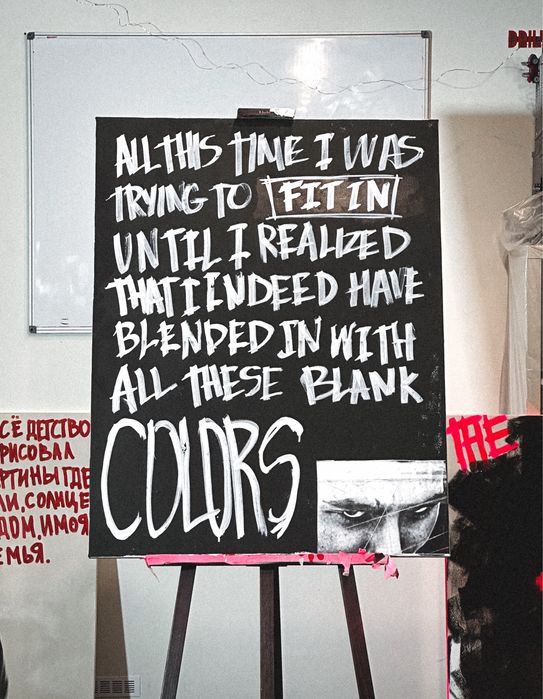 ALL THIS TIME I WAS
TRYING TO FIT IN
UNTIL I REALIZED
THAT I INDEED HAVE
BLENDED IN WITH
ALL THESE BLANK
COLORS
СЁ ДЕТСТВО
РИСОВАЛ
РТИНЫ ГДЕ
ЛИ, СОЛНЦЕ
ДОМ, И МОЯ
ЕМЬЯ.
THE